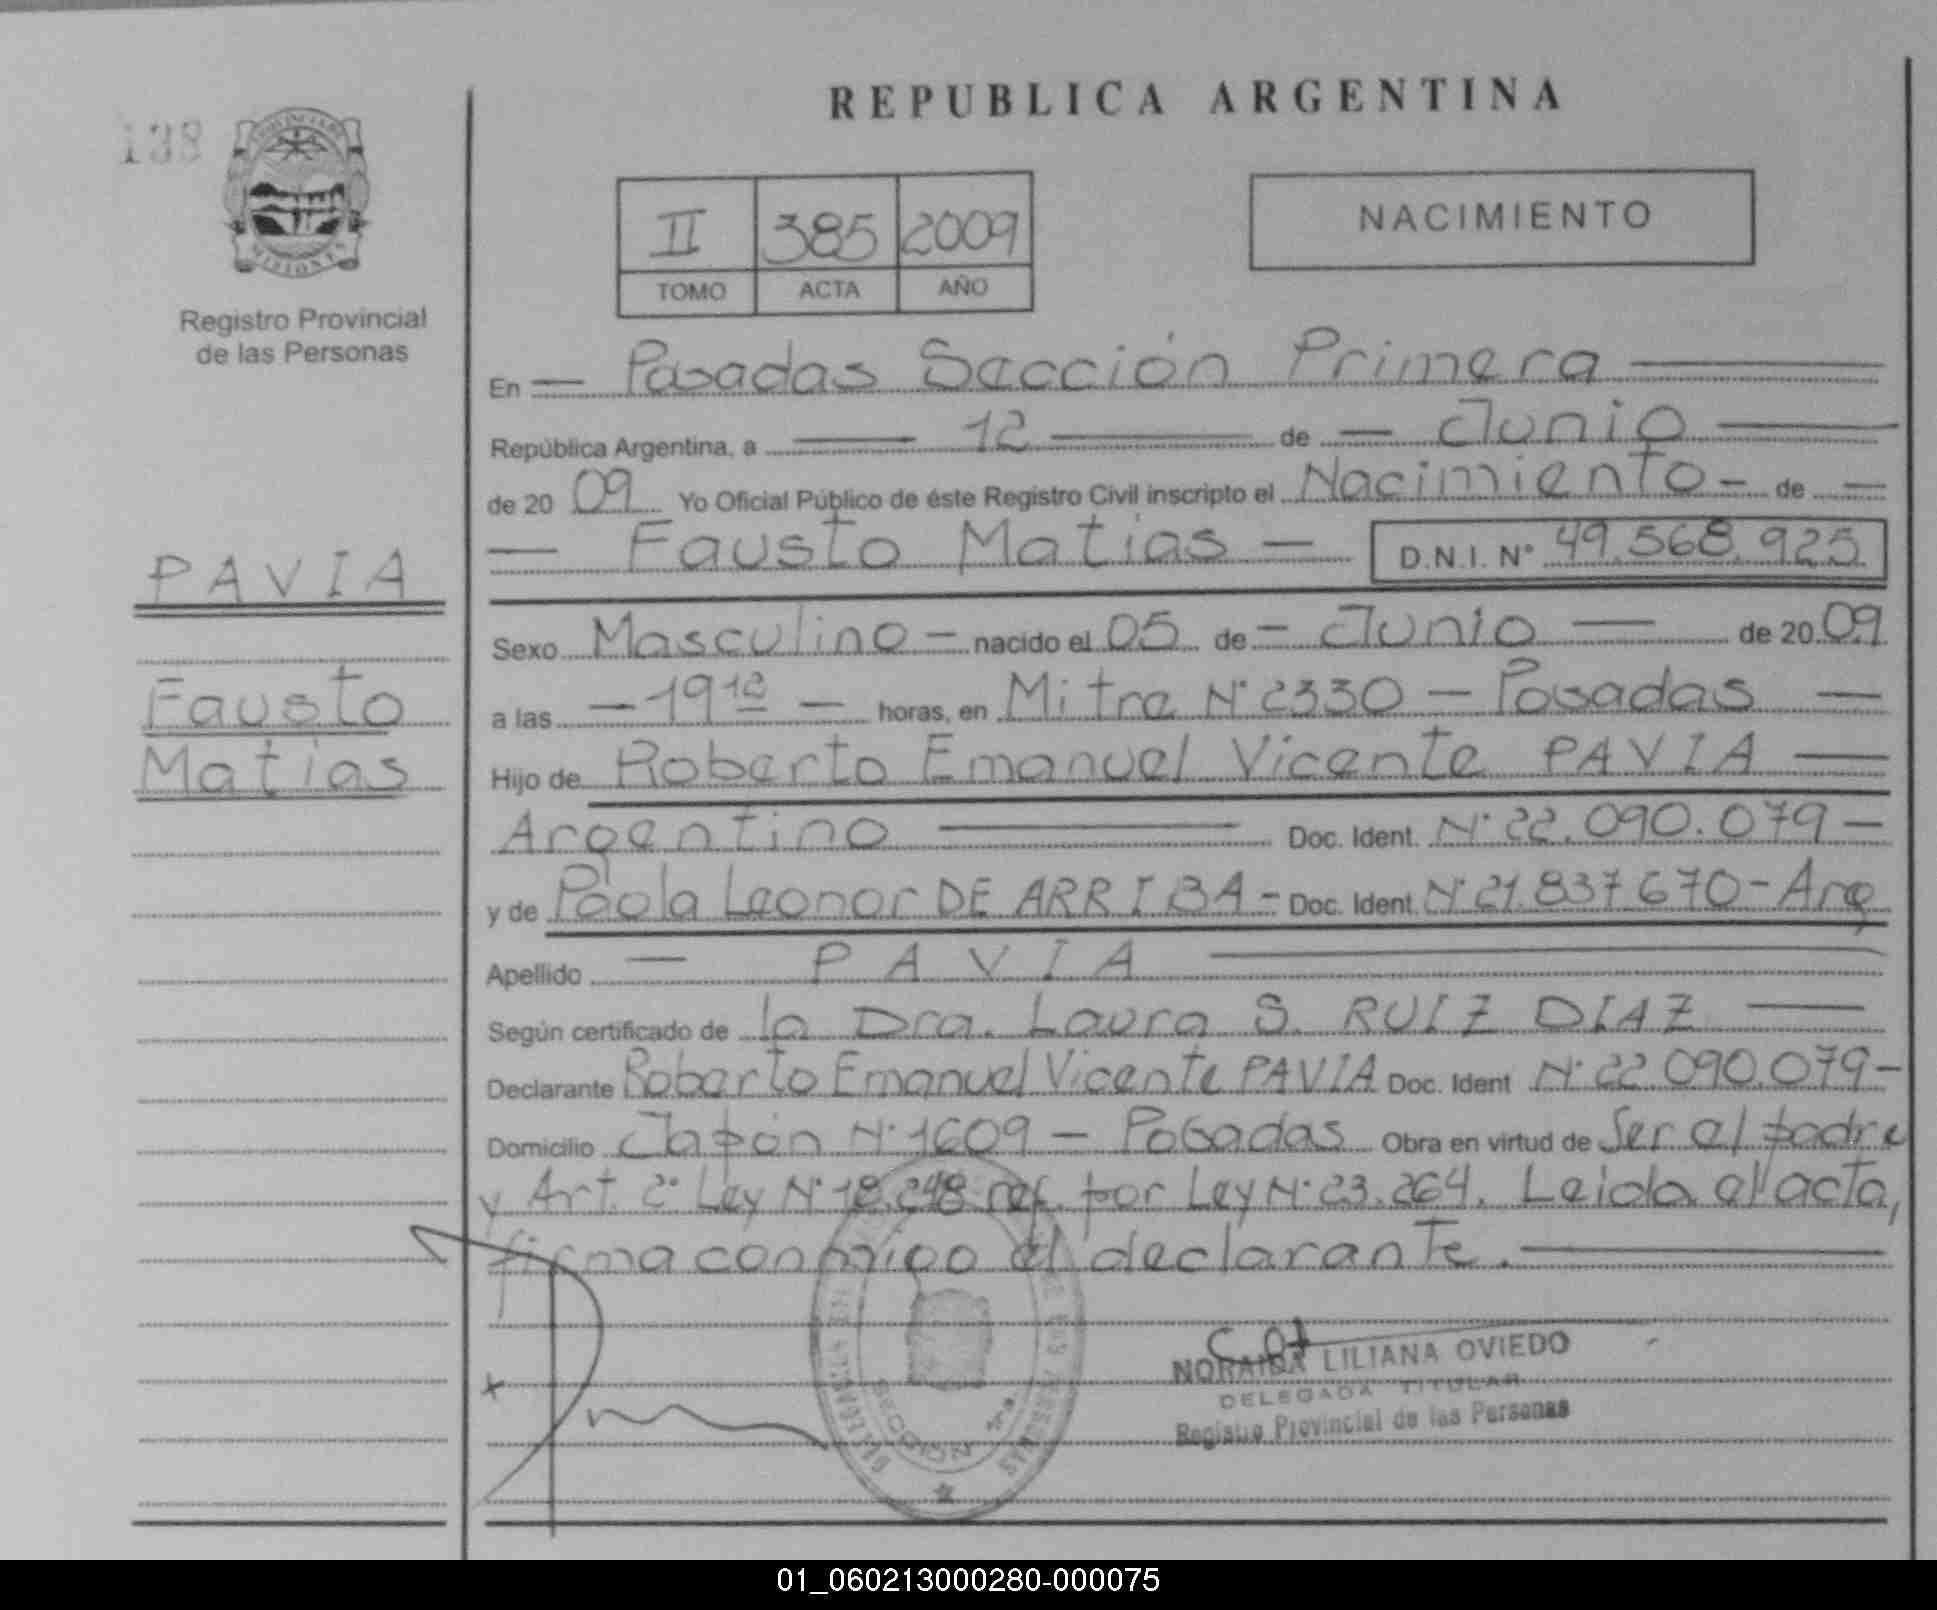 REPUBLICA ARGENTINA
138
PROVINCIA DE
MISIONES
Registro Provincial
de las Personas
II 385 2009
TOMO ACTA AÑO
NACIMIENTO
En — Posadas Sección Primera —
República Argentina, a — 12 — de — Junio —
de 20 09 Yo Oficial Público de éste Registro Civil inscripto el Nacimiento - de —
— Fausto Matias — D.N.I. N° 49.568.925
PAVIA
Fausto
Matias
Sexo Masculino - nacido el 05 de - Junio — de 20 09
a las - 19 12 - horas, en Mitre N° 2330 - Posadas —
Hijo de Roberto Emanuel Vicente PAVIA —
Argentino — Doc. Ident. N° 22.090.079 -
y de Paola Leonor DE ARRIBA - Doc. Ident. N° 21.837670 - Arg
Apellido — PAVIA —
Según certificado de la Dra. Laura S. RUIZ DIAZ —
Declarante Roberto Emanuel Vicente PAVIA Doc. Ident N° 22.090.079 -
Domicilio Japón N° 1609 - Posadas Obra en virtud de Ser el padre
y Art. 2° Ley N° 18.248 ref. por Ley N° 23.264. Leida el acta,
firma conmigo el declarante. —
SECCION 1ra.
NORAIDA LILIANA OVIEDO
DELEGADA TITULAR
Registro Provincial de las Personas
01_060213000280-000075